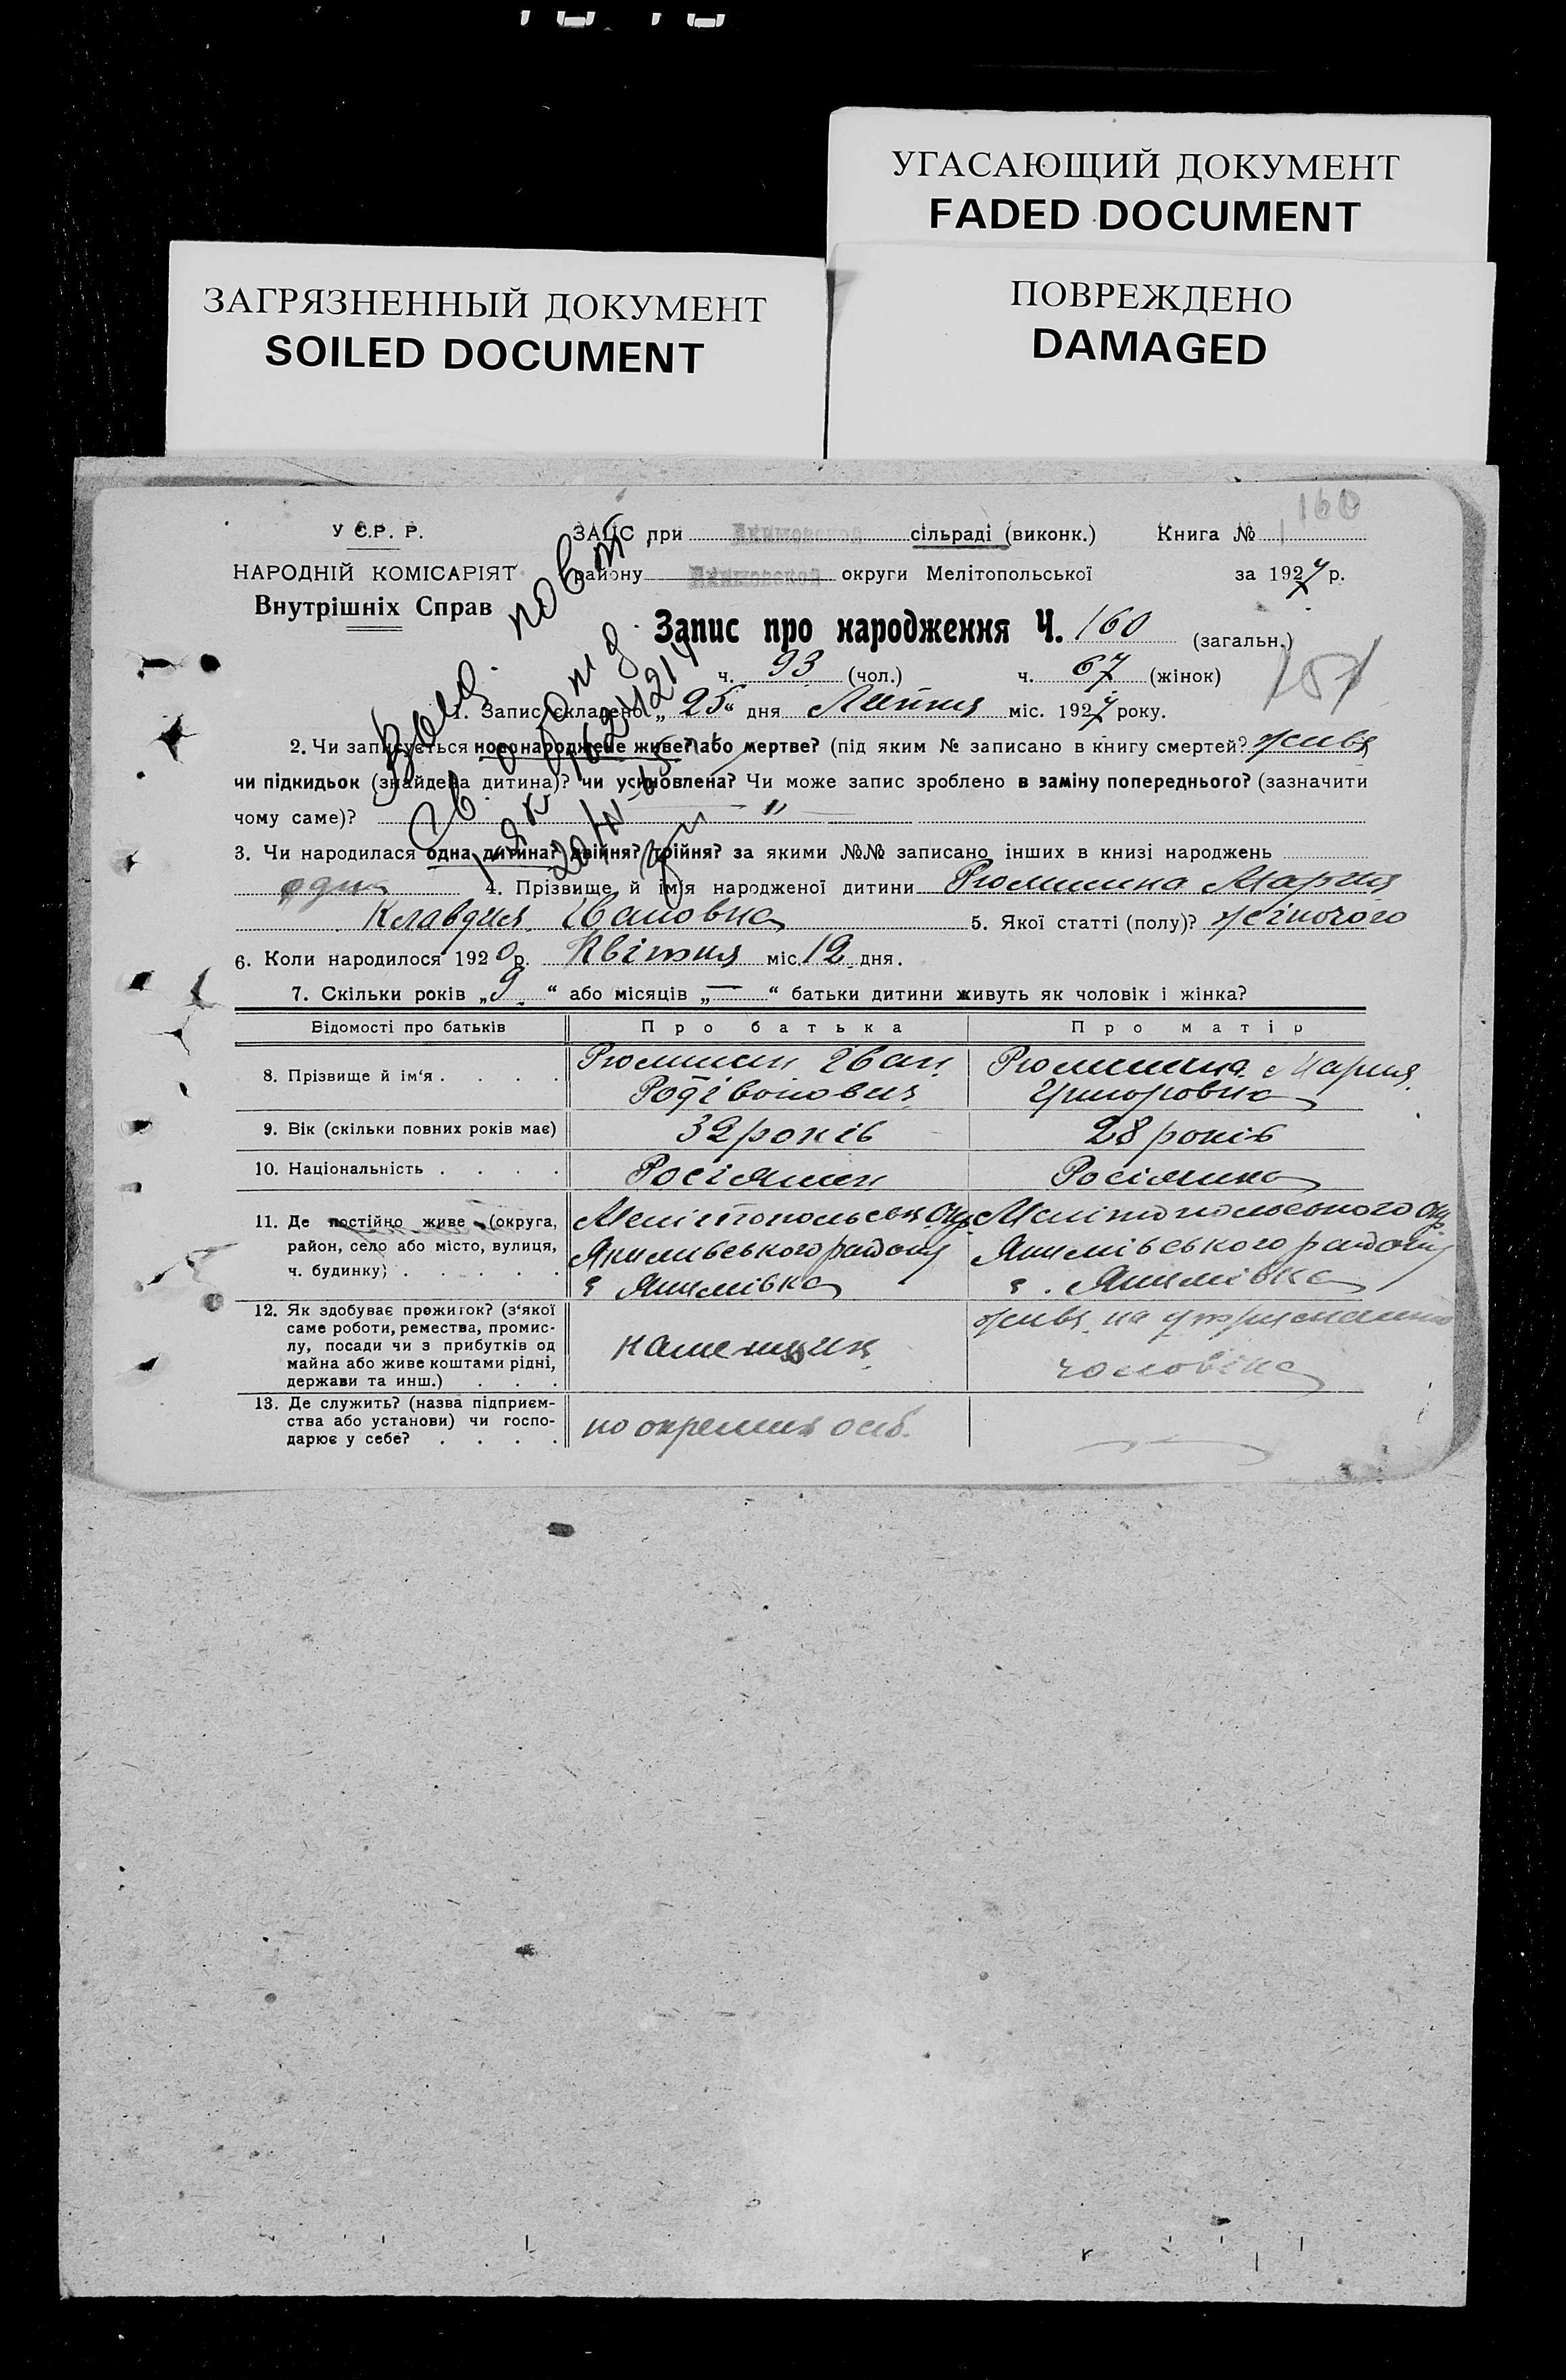 УГАСАЮЩИЙ ДОКУМЕНТ
FADED DOCUMENT
ЗАГРЯЗНЕННЫЙ ДОКУМЕНТ
SOILED DOCUMENT
ПОВРЕЖДЕНО
DAMAGED
160
У С.Р. Р.
ЗАЦС при Якимовской сільраді (виконк.) Книга № 1
НАРОДНІЙ КОМІСАРІЯТ
району Якимовской округи Мелітопольської за 1927 р.
Внутрішніх Справ
Запис про народження Ч. 160 (загальн.)
ч. 93 (чол.) ч. 67 (жінок)
151
1. Запис складено „ 25 “ дня Липня міс. 1927 року.
2. Чи записується новонароджене живе? або мертве? (під яким № записано в книгу смертей? живе
чи підкидьок (знайдена дитина)? чи усиновлена? Чи може запис зроблено в заміну попереднього? (зазначити
чому саме)? — " —
3. Чи народилася одна дитина? двійня? трійня? за якими №№ записано інших в книзі народжень
одна 4. Прізвище й ім'я народженої дитини Рюмшина Мария
Клавдия Івановна 5. Якої статті (полу)? жіночого
6. Коли народилося 1920 р. Квітня міс. 12 дня.
7. Скільки років „ 9 “ або місяців „ — “ батьки дитини живуть як чоловік і жінка?
Відомості про батьків Про батька Про матір
8. Прізвище й ім'я . . . . Рюмшин Іван Рюмшина Мария
Родівонович Григоровна
9. Вік (скільки повних років має) 32 років 28 років
10. Національність . . . . Росіянин Росіянка
11. Де постійно живе (округа, Мелітопольськ. Окр. Мелітопольського Окр.
район, село або місто, вулиця, Якимівського району Якимівського району
ч. будинку) . . . . . с Якимівка с. Якимівка
12. Як здобуває прожиток? (з'якої живе на утриманню
саме роботи, ремества, промис-
лу, посади чи з прибутків од каменщик
майна або живе коштами рідні, чоловіка
держави та инш.) . . .
13. Де служить? (назва підприєм-
ства або установи) чи госпо- по окремих осіб.
дарює у себе? . . . .